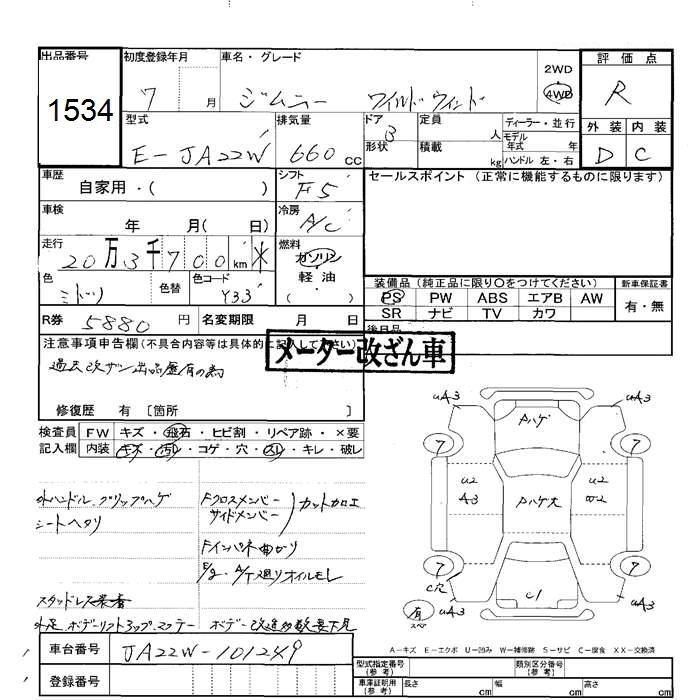 出品番号 初度登録年月 車名・グレード 2WD 評価点
1534 7 月 ジムニー ワイルドウィンド 4WD R
型式 排気量 ドア 3 定員 人 ディーラー・並行 外装 内装
E-JA22W 660 CC 形状 積載 kg モデル年式 年 D C
ハンドル 左・右
車歴 シフト セールスポイント (正常に機能するものに限ります)
自家用・( ) F5
車検 年 月( 日) 冷房 A/C
走行 20万3千700km * 燃料 ガソリン
軽・油
( )
色 ミドリ 色替 色コード Y33
装備品 (純正品に限り○をつけてください) 新車保証書
PS PW ABS エアB AW 有・無
SR ナビ TV カワ
R券 5880 円 名変期限 月 日 後日品
注意事項申告欄(不具合内容等は具体的に記入してください)
メーター改ざん車
過去改ザン出品歴有の為
修復歴 有 [箇所 ]
検査員 FW キズ・飛石・ヒビ割・リペア跡・×要
記入欄 内装 キズ・汚レ・コゲ・穴・スレ・キレ・破レ
外ハンドル、グリップハゲ
シートヘタリ
Fクロスメンバー
サイドメンバー
カットカロエ
Fインパネ曲がり
E/g・A/T廻りオイルモレ
スタッドレス装着
外足、ボデーリフト3アップ、マフラー
ボデー改造多数要下見
uA3 Aハゲ uA3
7 7
u2 u2
A3 Aハゲ大 W2
7 7
C穴 C1
uA3 uA3
有
スペ
A-キズ E-エクボ U-凹み W-補修跡 S-サビ C-腐食 XX-交換済
車台番号 JA22W-101249
登録番号
型式指定番号(参考) 類別区分番号(参考)
車庫証明用(参考) 長さ cm 幅 cm 高さ cm